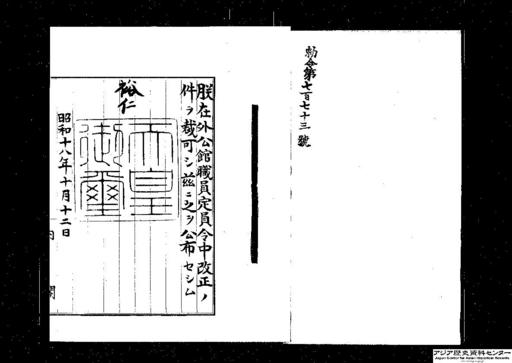 勅令第七百七十三號
朕在外公館職員定員令中改正ノ
件ヲ裁可シ茲ニ之ヲ公布セシム
裕仁
天皇
御璽
昭和十八年十月十二日
内 閣
アジア歴史資料センター
Japan Center for Asian Historical Records